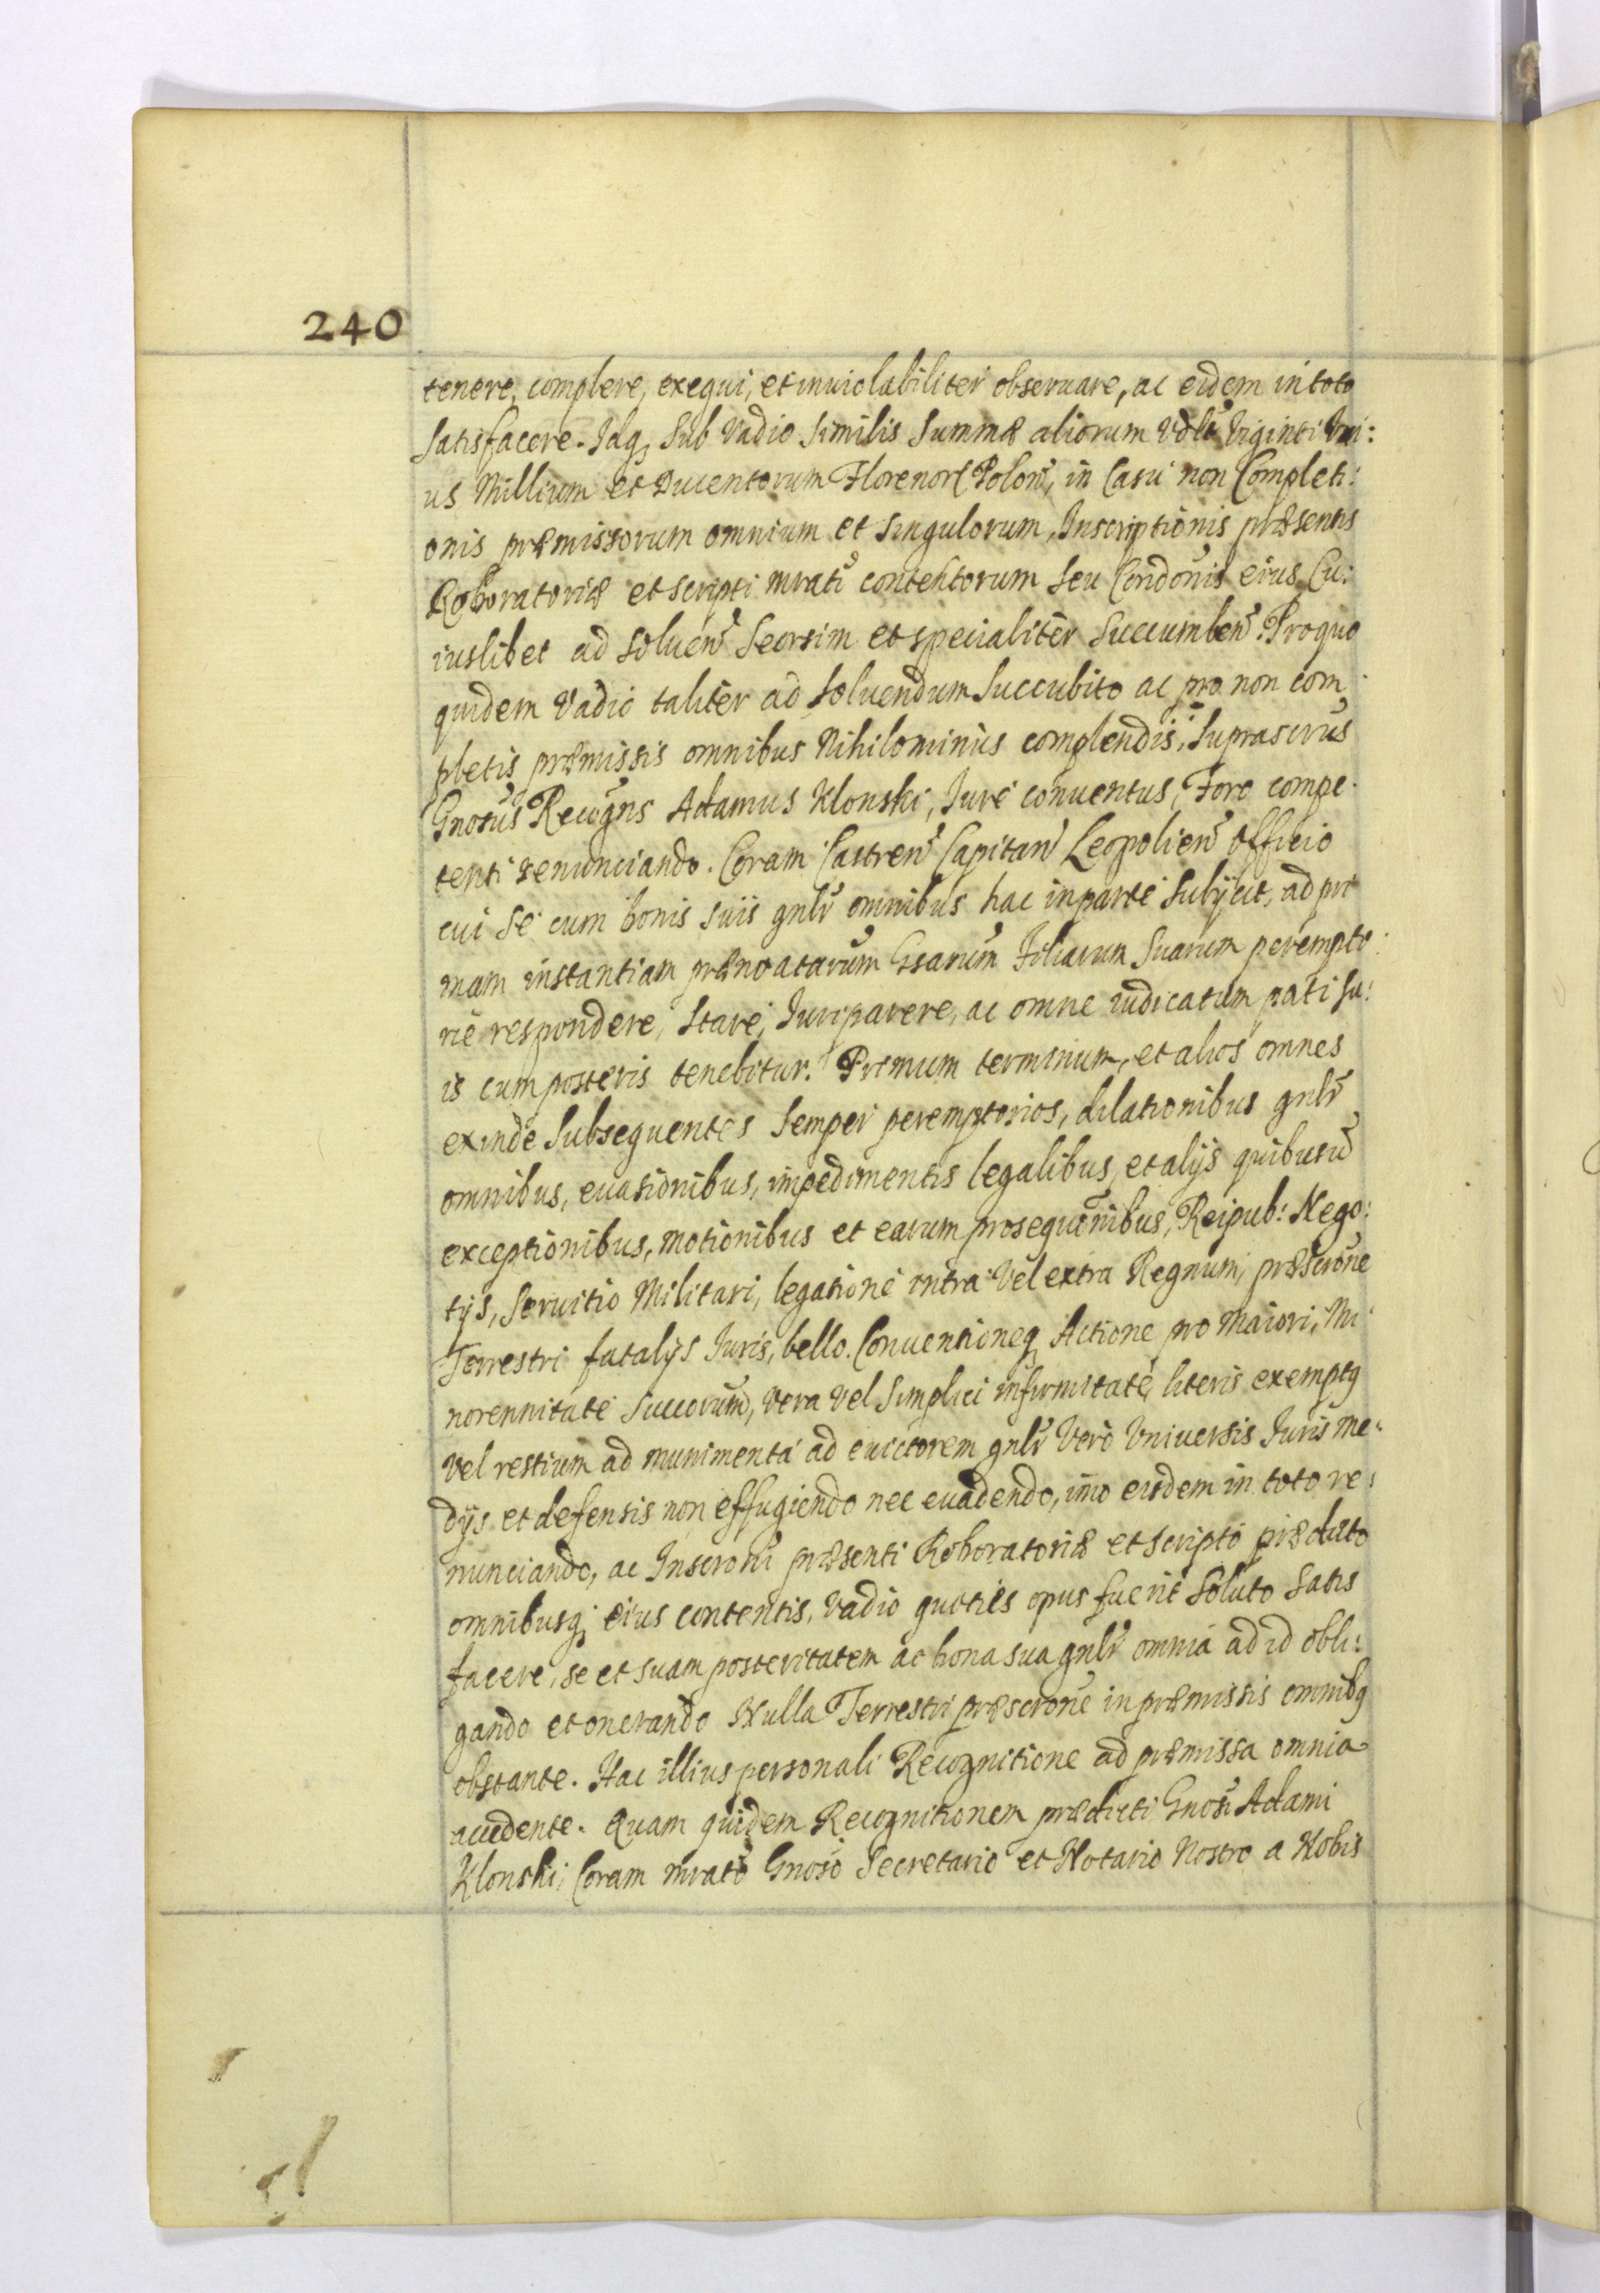 240
tenere, complere, exequi, et inviolabiliter obseruare, ac eidem in toto
satisfacere. Idq, sub Vadio similis summæ aliorum Vdlt Viginti Vni:
us Millium et Ducentorum Florenor Polon, in Casu non Completi:
onis præmissorum omnium et singulorum, Inscriptionis præsentis
Roboratoriæ et scripti mrati contentorum seu Condonis eius Cu:
iuslibet ad soluen seorsim et specialiter succumben. Pro quo
quidem Vadio taliter ad soluendum succubito ac pro non com
pletis præmissis omnibus Nihilominus complendis, suprascrus
Gnosus Recogns Adamus Klonski, Iure conuentus, Foro compe
tenti renunciando. Coram Castren Capitan Leopolien Officio
cui se cum bonis suis gnlr omnibus hac in parte subijcit, ad pri
mam instantiam prænoatarum Gsarum Filiarum suarum perempto
rie respondere, stare, Iuri parere, ac omne iudicatum pati su:
is cum posteris tenebitur. Primum terminum, et alios omnes
exinde subsequentes semper peremptorios, dilationibus gnlr
omnibus, euasionibus, impedimentis legalibus, et alijs quibusu
exceptionibus, motionibus et earum prosequonibus, Reipub: Nego:
tijs, seruitio Militari, legatione intra vel extra Regnum, præscrone
Terrestri fatalijs Iuris, bello. Conuentioneq Actione pro maiori, Mi
norennitate succorum, vera vel simplici infirmitate, literis exemptq
vel restium ad munimenta ad euictorem gnlr vero Vniuersis Iuris me
dijs et defensis non effugiendo nec euadendo, imo eisdem in toto re:
nunciando, ac Inscroni præsenti Roboratoriæ et scripto prædicto
omnibusq eius contentis, Vadio quoties opus fuerit soluto satis
facere, se et suam posteritatem ac bona sua gnlr omnia ad id obli:
gando et onerando Nulla Terrestri præscrone in præmissis omnibq
obstante. Hac illius personali Recognitione ad præmissa omnia
accedente. Quam quidem Recognitionem prædicti Gnosi Adami
Klonski, Coram mrato Gnoso Secretario et Notario Nostro a Nobis